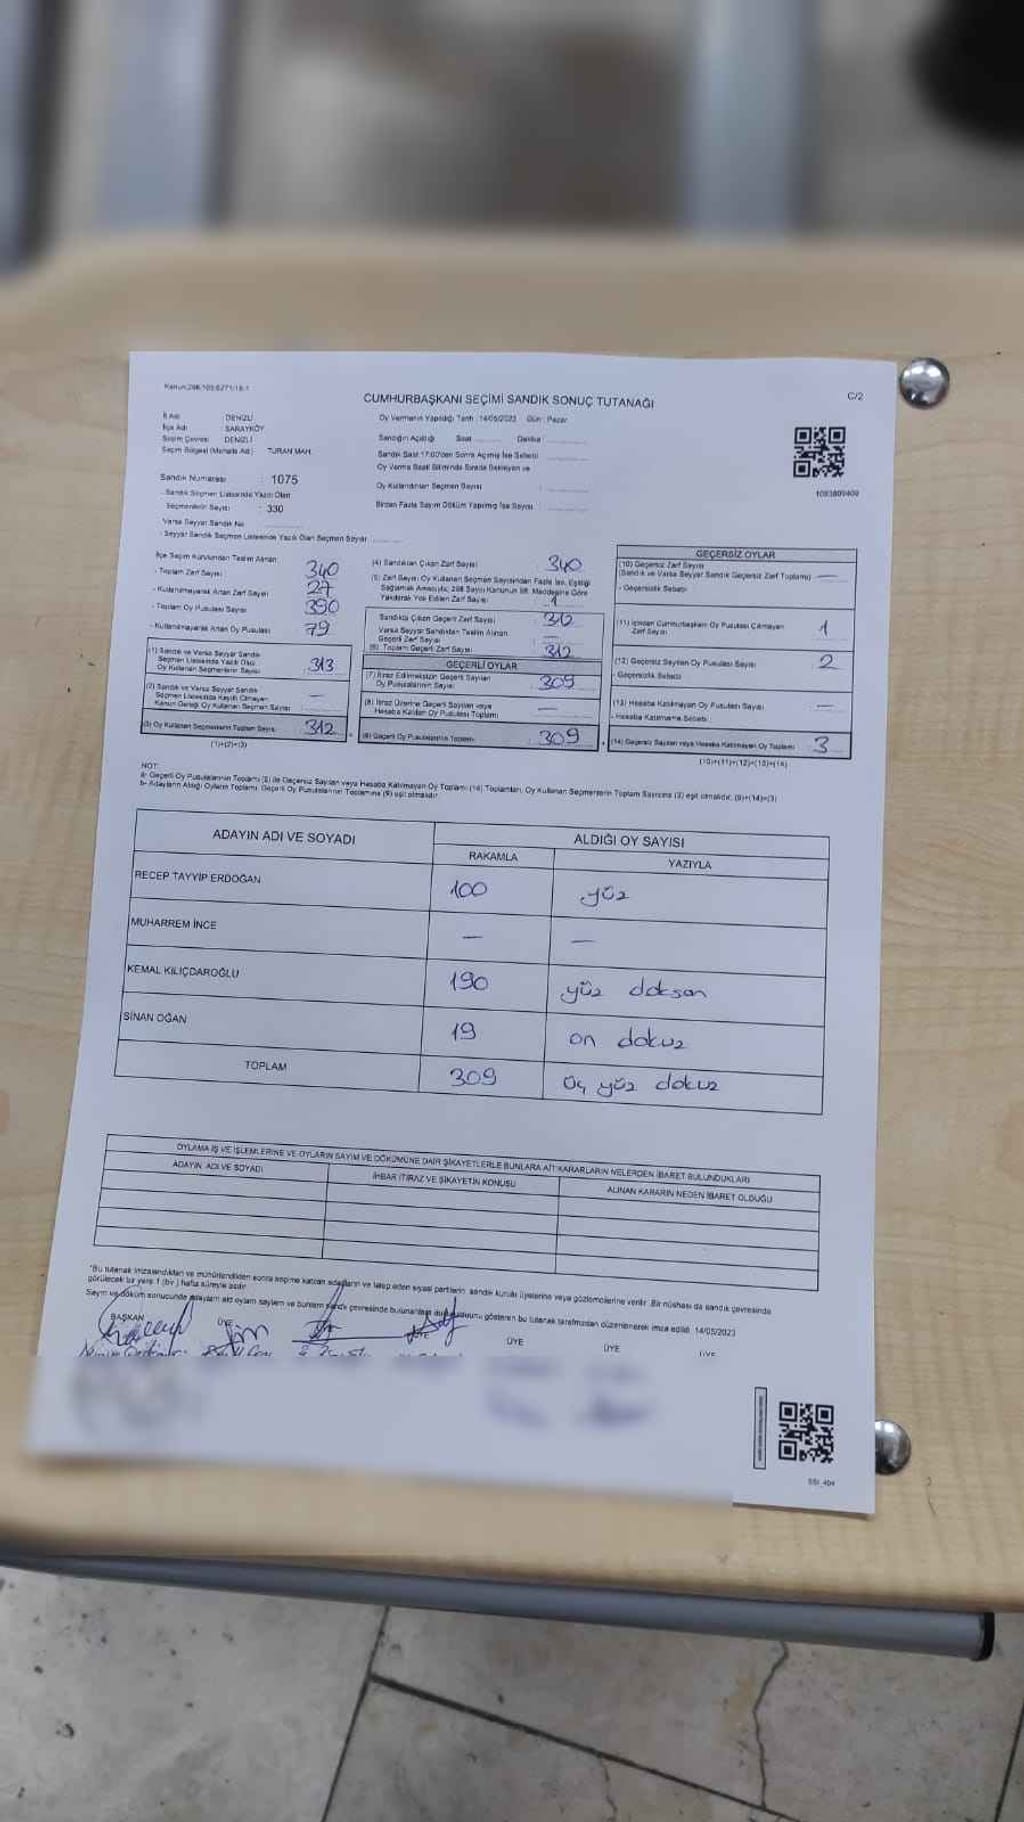 Kanun:298.105.6271/18-1
CUMHURBAŞKANI SEÇİMİ SANDIK SONUÇ TUTANAĞI
C/2
İl Adı : DENİZLİ
İlçe Adı : SARAYKÖY
Seçim Çevresi : DENİZLİ
Seçim Bölgesi (Mahalle Adı) : TURAN MAH.
Oy Vermenin Yapıldığı Tarih : 14/05/2023 Gün : Pazar
Sandığın Açıldığı Saat Dakika
Sandık Saat 17:00'den Sonra Açılmış İse Sebebi
Oy Verme Saati Bitiminde Sırada Bekleyen ve
Oy Kullandırılan Seçmen Sayısı
Birden Fazla Sayım Döküm Yapılmış İse Sayısı
1093809409
Sandık Numarası : 1075
Sandık Seçmen Listesinde Yazılı Olan
Seçmenlerin Sayısı : 330
Varsa Seyyar Sandık No
Seyyar Sandık Seçmen Listesinde Yazılı Olan Seçmen Sayısı
İlçe Seçim Kurulundan Teslim Alınan
- Toplam Zarf Sayısı 340
- Kullanılmayarak Artan Zarf Sayısı 27
- Toplam Oy Pusulası Sayısı 390
- Kullanılmayarak Artan Oy Pusulası 79
(1) Sandık ve Varsa Seyyar Sandık
Seçmen Listesinde Yazılı Olup
Oy Kullanan Seçmenlerin Sayısı 313
(2) Sandık ve Varsa Seyyar Sandık
Seçmen Listesinde Kayıtlı Olmayan
Kanun Gereği Oy Kullanan Seçmen Sayısı —
(3) Oy Kullanan Seçmenlerin Toplam Sayısı 312
(1)+(2)=(3)
(4) Sandıktan Çıkan Zarf Sayısı 340
(5) Zarf Sayısı Oy Kullanan Seçmen Sayısından Fazla İse, Eşitliği
Sağlamak Amacıyla, 298 Sayılı Kanunun 98. Maddesine Göre
Yakılarak Yok Edilen Zarf Sayısı 1
Sandıkta Çıkan Geçerli Zarf Sayısı 312
Varsa Seyyar Sandıktan Teslim Alınan
Geçerli Zarf Sayısı —
(6) Toplam Geçerli Zarf Sayısı 312
GEÇERLİ OYLAR
(7) İtiraz Edilmeksizin Geçerli Sayılan
Oy Pusulalarının Sayısı 309
(8) İtiraz Üzerine Geçerli Sayılan veya
Hesaba Katılan Oy Pusulası Toplamı —
(9) Geçerli Oy Pusulalarının Toplamı 309
GEÇERSİZ OYLAR
(10) Geçersiz Zarf Sayısı
(Sandık ve Varsa Seyyar Sandık Geçersiz Zarf Toplamı) —
- Geçersizlik Sebebi
(11) İçinden Cumhurbaşkanı Oy Pusulası Çıkmayan
Zarf Sayısı 1
(12) Geçersiz Sayılan Oy Pusulası Sayısı 2
- Geçersizlik Sebebi
(13) Hesaba Katılmayan Oy Pusulası Sayısı —
- Hesaba Katılmama Sebebi
(14) Geçersiz Sayılan veya Hesaba Katılmayan Oy Toplamı 3
(10)+(11)+(12)+(13)=(14)
NOT:
a- Geçerli Oy Pusulalarının Toplamı (9) ile Geçersiz Sayılan veya Hesaba Katılmayan Oy Toplamı (14) Toplamları, Oy Kullanan Seçmenlerin Toplam Sayısına (3) eşit olmalıdır. (9)+(14)=(3)
b- Adayların Aldığı Oyların Toplamı, Geçerli Oy Pusulalarının Toplamına (9) eşit olmalıdır.
ADAYIN ADI VE SOYADI
ALDIĞI OY SAYISI
RAKAMLA YAZIYLA
RECEP TAYYİP ERDOĞAN 100 yüz
MUHARREM İNCE — —
KEMAL KILIÇDAROĞLU 190 yüz doksan
SİNAN OĞAN 19 on dokuz
TOPLAM 309 üç yüz dokuz
OYLAMA İŞ VE İŞLEMLERİNE VE OYLARIN SAYIM VE DÖKÜMÜNE DAİR ŞİKAYETLERLE BUNLARA AİT KARARLARIN NELERDEN İBARET BULUNDUKLARI
ADAYIN ADI VE SOYADI
İHBAR İTİRAZ VE ŞİKAYETİN KONUSU
ALINAN KARARIN NEDEN İBARET OLDUĞU
*Bu tutanak imzalandıktan ve mühürlendikten sonra seçime katılan adayların ve talep eden siyasi partilerin sandık kurulu üyelerine veya gözlemcilerine verilir. Bir nüshası da sandık çevresinde
görülecek bir yere 1 (bir) hafta süreyle asılır.
BAŞKAN
ÜYE
ÜYE
ÜYE
ÜYE